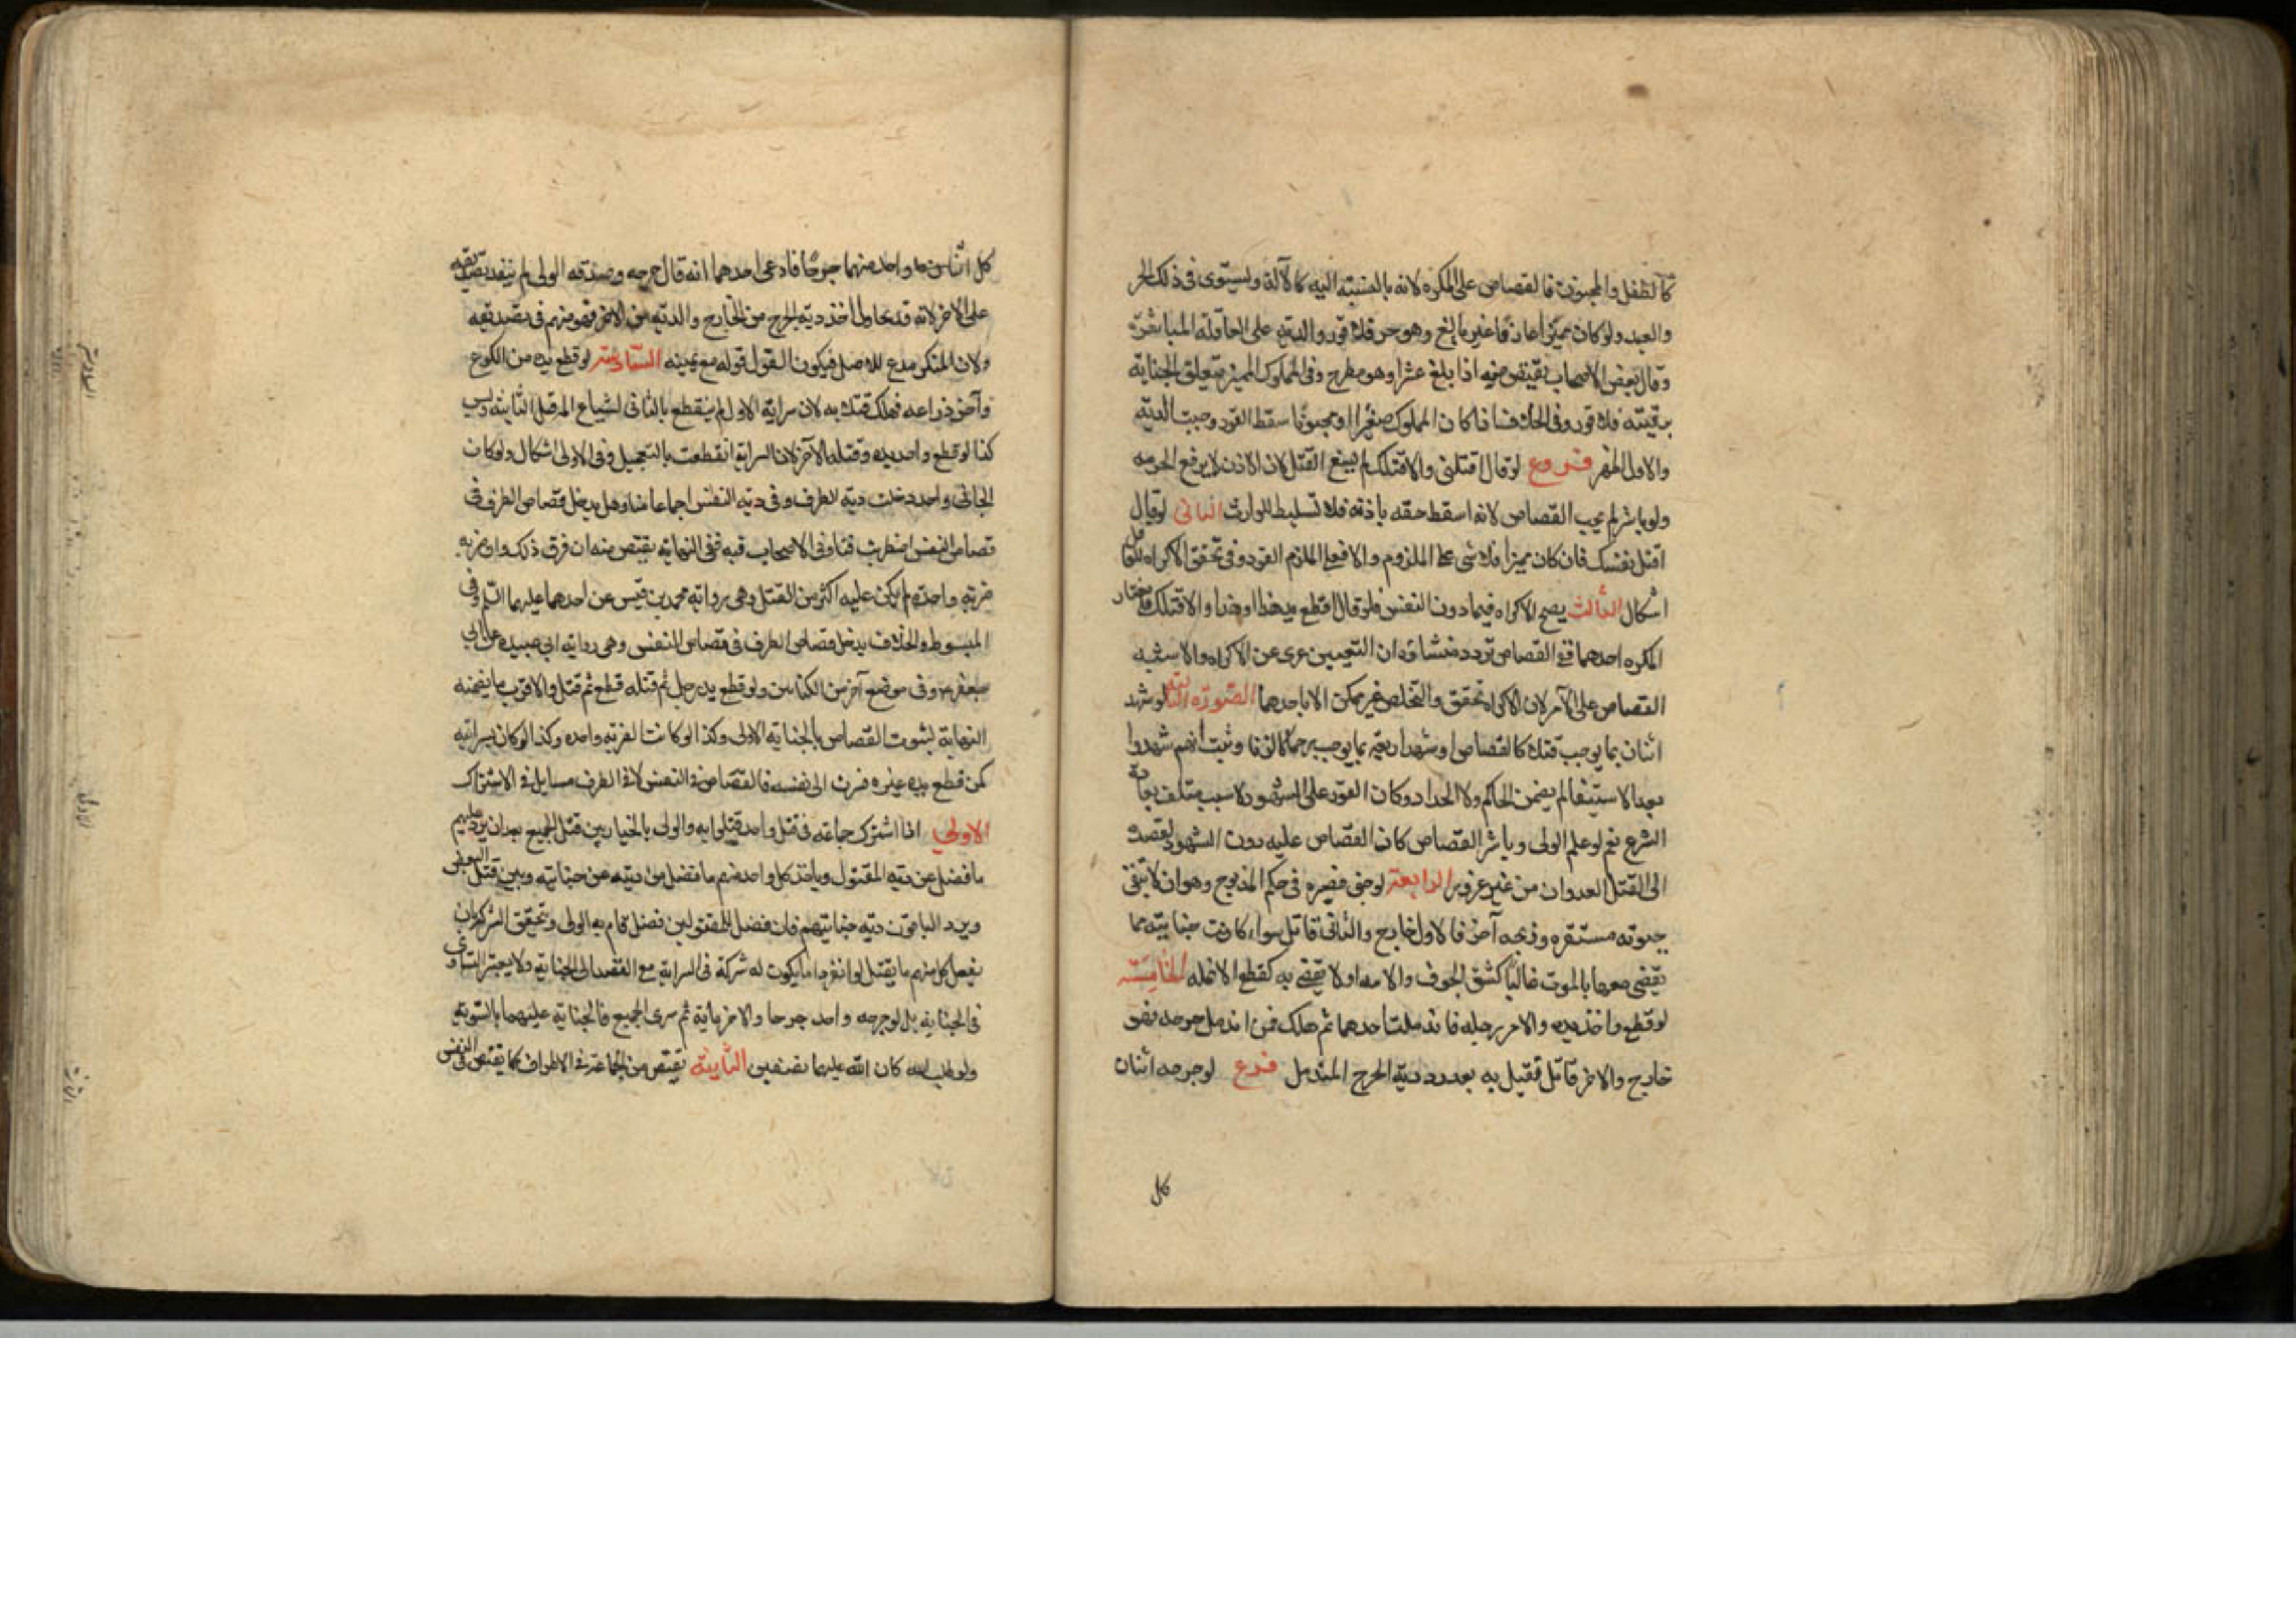 كالطفل والمجنون فالقصاص على المكره لانه بالنسبة اليه كالآلة ويستوى فى ذلك الحر
والعبد ولو كان مميزا عارفا غير بالغ وهو حر فلا قود والدية على عاقلة المباشرة
وقال بعض الاصحاب يقتص منه اذا بلغ عشرا وهو مطرح وفى المملوك المميز يتعلق الجناية
برقبته فلا قود وفى الخلاف اذا كان المملوك صغيرا او مجنونا سقط القود ووجبت الدية
والاول اظهر فروع لو قال اقتلنى والا قتلتك لم يسغ القتل لان الاذن لا يرفع الحرمه
ولو باشر لم يجب القصاص لانه اسقط حقه باذنه فلا تسليط للوارث الثانى لو قال
اقتل نفسك فان كان مميزا فلا شى على الملزوم والا فعلى الملزم القود وفى تحقق الاكراه للعاقل
اشكال الثالث يصح الاكراه فيما دون النفس فلو قال اقطع يد هذا او هذا والا قتلتك فاختار
المكره احدهما فى القصاص تردد منشاؤه ان التعيين عرى عن الاكراه والاشبه
القصاص على الآمر لان الاكراه تحقق والتخلص غير ممكن الا باحدهما الصورة الثالثة لو شهد
اثنان بما يوجب قتلا كالقصاص او شهد اربعة بما يوجب رجما كالزنا وثبت انهم شهدوا
بعد الاستيفا لم يضمن الحاكم ولا الحداد وكان القود على الشهود لانه سبب متلف بعادة
الشرع نعم لو علم الولى وباشر القصاص كان القصاص عليه دون الشهود لقصده
الى القتل العدوان من غير غرور الرابعة لو جنى فصيره فى حكم المذبوح وهو ان لا تبقى
حيوته مستقره وذبحه آخر فالاول جارح والثانى قاتل سواء كانت جنايته مما
يقضى معها بالموت غالبا كشق الجوف والامعا او لا يقضى به كقطع الانمله الخامسة
لو قطع واحد يده والاخر رجله فاندملت احدهما ثم هلك فمن اندمل جرحه فهو
جارح والاخر قاتل فيقتل به بعد رد دية الجرح المندمل فرع لو جرحه اثنان
كل
كل واحد منهما جرحا فادعى احدهما اندمال جرحه وصدقه الولى لم ينفد تصديقه
على الاخر لانه قد يحاول اخذ دية الجرح من الجارح والدية من الاخر فهو متهم فى تصديقه
ولان المنكر مدع للاصل فيكون القول قوله مع يمينه السادسة لو قطع يده من الكوع
وآخر ذراعه فهلك قتلا به لان سراية الاول لم ينقطع بالثانى لشياع الم قبل الثانية وليس
كذا لو قطع واحد يده وقتله الآخر لان السراية انقطعت بالتعجيل وفى الاولى اشكال ولو كان
الجانى واحدا دخلت دية الطرف فى دية النفس اجماعا منا وهل يدخل قصاص الطرف فى
قصاص النفس اضطربت فتاوى الاصحاب فيه ففى النهاية يقتص منه ان فرق ذلك وان ضربه
ضربة واحدة لم يكن عليه اكثر من القتل وهى رواية محمد بن قيس عن احدهما عليهما السلم وفى
المبسوط والخلاف يدخل قصاص الطرف فى قصاص النفس وهى رواية ابى عبيده عن ابى
جعفر وفى موضع آخر من الكتابين ولو قطع يد رجل ثم قتله قطع ثم قتل والاقرب ما يضمنه
النهاية لثبوت القصاص بالجناية الاولى وكذا لو كانت الضربة واحده وكذا لو كان بسرايته
كمن قطع يد غيره فسرت الى نفسه فالقصاص فى النفس لا فى الطرف مسايل فى الاشتراك
الاولى اذا اشترك جماعة فى قتل واحد قتلوا به والولى بالخيار بين قتل الجميع بعد ان يرد عليهم
ما فضل عن دية المقتول وياخذ كل واحد منهم ما فضل من ديته عن جنايته وبين قتل البعض
ويرد الباقون دية جنايتهم فان فضل للمقتولين فضل قام به الولى ويتحقق الشركة بان
يفعل كل منهم ما يقتل لو انفرد او ما يكون له شركة فى السراية مع القصد الى الجناية ولا يعتبر التساوى
فى الجناية بل لو جرحه واحد جرحا والاخر ماية ثم سرى الجميع فالجناية عليهما بالسوية
ولو طلب الدية كان الدية عليهما نصفين الثانية يقتص من الجماعة فى الاطراف كما يقتص فى النفس
السادسة
الاولى
الثانية